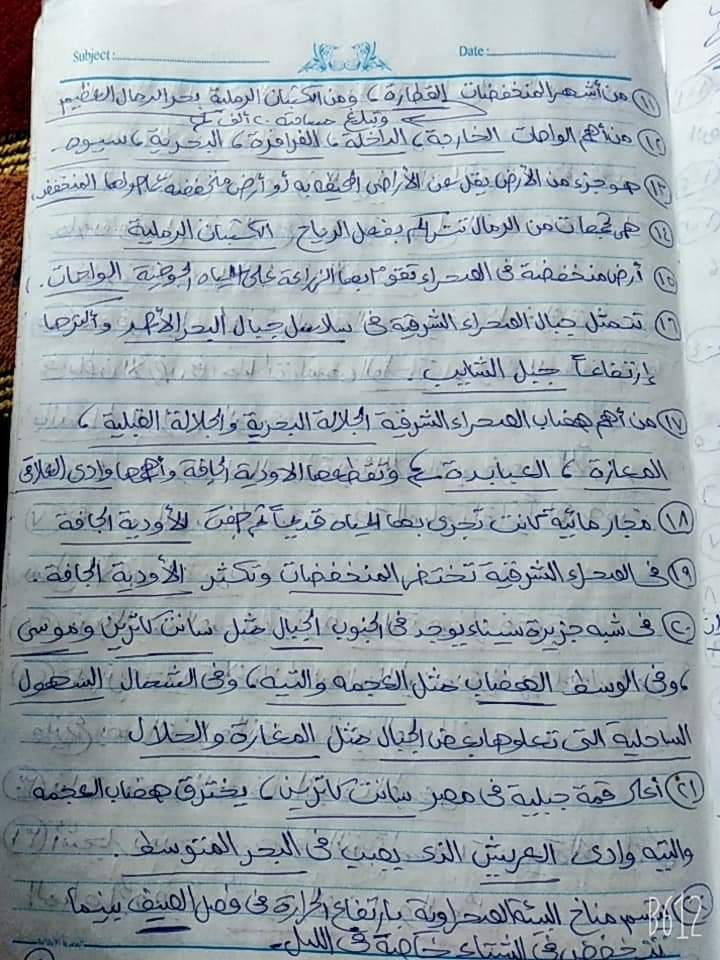 Subject: Date:
(١١) من أشهر المنخفضات القطارة، ومن الكثبان الرملية بحر الرمال العظيم
وتبلغ مساحته
(١٢) من أهم الواحات الخارجة، الداخلة، الفرافرة، البحرية، سيوه.
(١٣) هو جزء من الأرض يقل عن الأراضى المحيطه به أو أرض منخفضه عما حولها المنخفض.
(١٤) هى تجمعات من الرمال تتراكم بفعل الرياح، الكثبان الرملية
(١٥) أرض منخفضة فى الصحراء تقوم بها الزراعة على المياه الجوفية الواحات.
(١٦) تتمثل جبال الصحراء الشرقية فى سلاسل جبال البحر الأحمر وأكثرها
إرتفاعاً جبل الشايب.
(١٧) من أهم هضاب الصحراء الشرقية الجلالة البحرية والجلالة القبلية،
المعازة، العبابدة وتقطعها الاودية الجافة وأهمها وادى العلاقى
(١٨) مجار مائية كانت تجرى بها المياه قديماً ثم جفت الأودية الجافة
(١٩) فى الصحراء الشرقية تختفى المنخفضات وتكثر الأودية الجافة.
(٢٠) فى شبه جزيرة سيناء يوجد فى الجنوب الجبال مثل سانت كاترين وموسى
، وفى الوسط الهضاب مثل العجمه والتيه، وفى الشمال السهول
الساحلية التى تعلوها بعض الجبال مثل المغارة والحلال
(٢١) أعلى قمة جبلية فى مصر سانت كاترين، يخترق هضاب العجمة
والتيه وادى العريش الذى يصب فى البحر المتوسط.
مناخ البيئة الصحراوية بارتفاع الحرارة فى فصل الصيف بينما
تنخفض فى الشتاء خاصة فى الليل.
B612